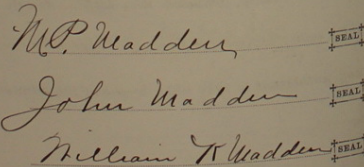 M.P. Madden SEAL
John Madden SEAL
William K Madden SEAL